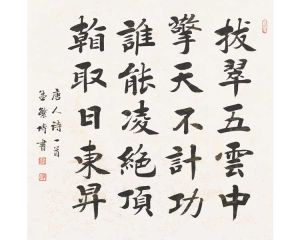 拔翠五雲中
擎天不計功
誰能凌絕頂
取日東昇
唐人詩一首
孟繁書